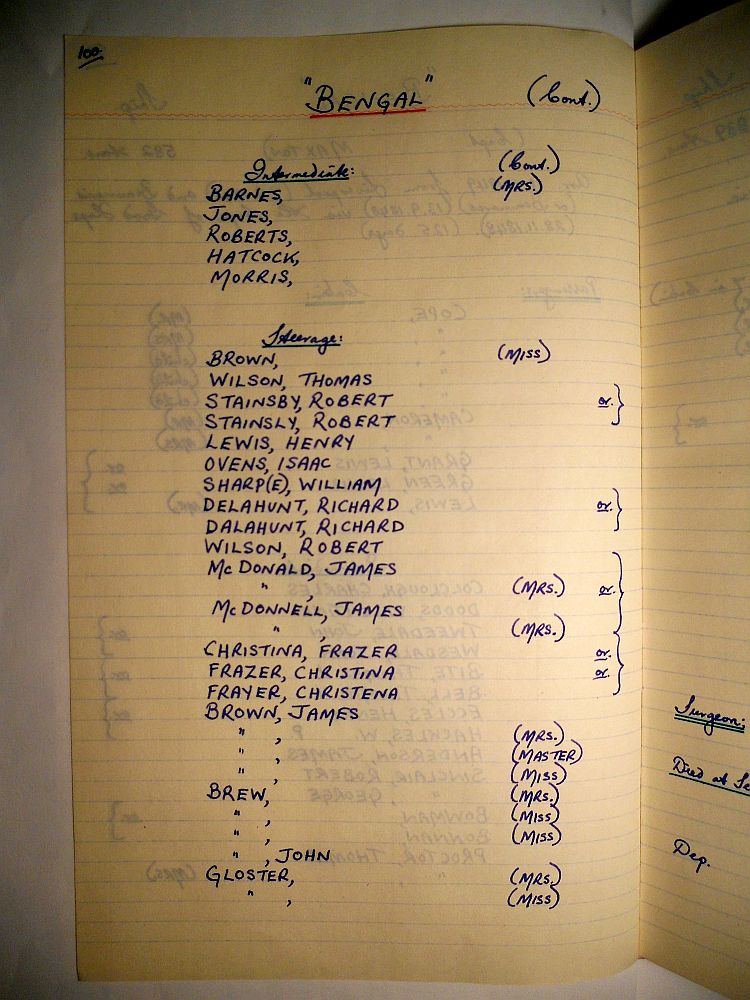 100
"BENGAL" (Cont.)
Intermediate: (Cont.)
BARNES, (MRS.)
JONES,
ROBERTS,
HATCOCK,
MORRIS,
Steerage:
BROWN, (MISS)
WILSON, THOMAS
STAINSBY, ROBERT or. }
STAINSLY, ROBERT
LEWIS, HENRY
OVENS, ISAAC
SHARP(E), WILLIAM
DELAHUNT, RICHARD or. }
DALAHUNT, RICHARD
WILSON, ROBERT
McDONALD, JAMES
" , (MRS.) or. }
McDONNELL, JAMES
" , (MRS.)
CHRISTINA, FRAZER or. }
FRAZER, CHRISTINA or.
FRAYER, CHRISTENA
BROWN, JAMES
" , (MRS.)
" , (MASTER)
" , (MISS)
BREW, (MRS.)
" , (MISS)
" , (MISS)
" , JOHN
GLOSTER, (MRS.)
" , (MISS)
Surgeon:
Died at
Dep.